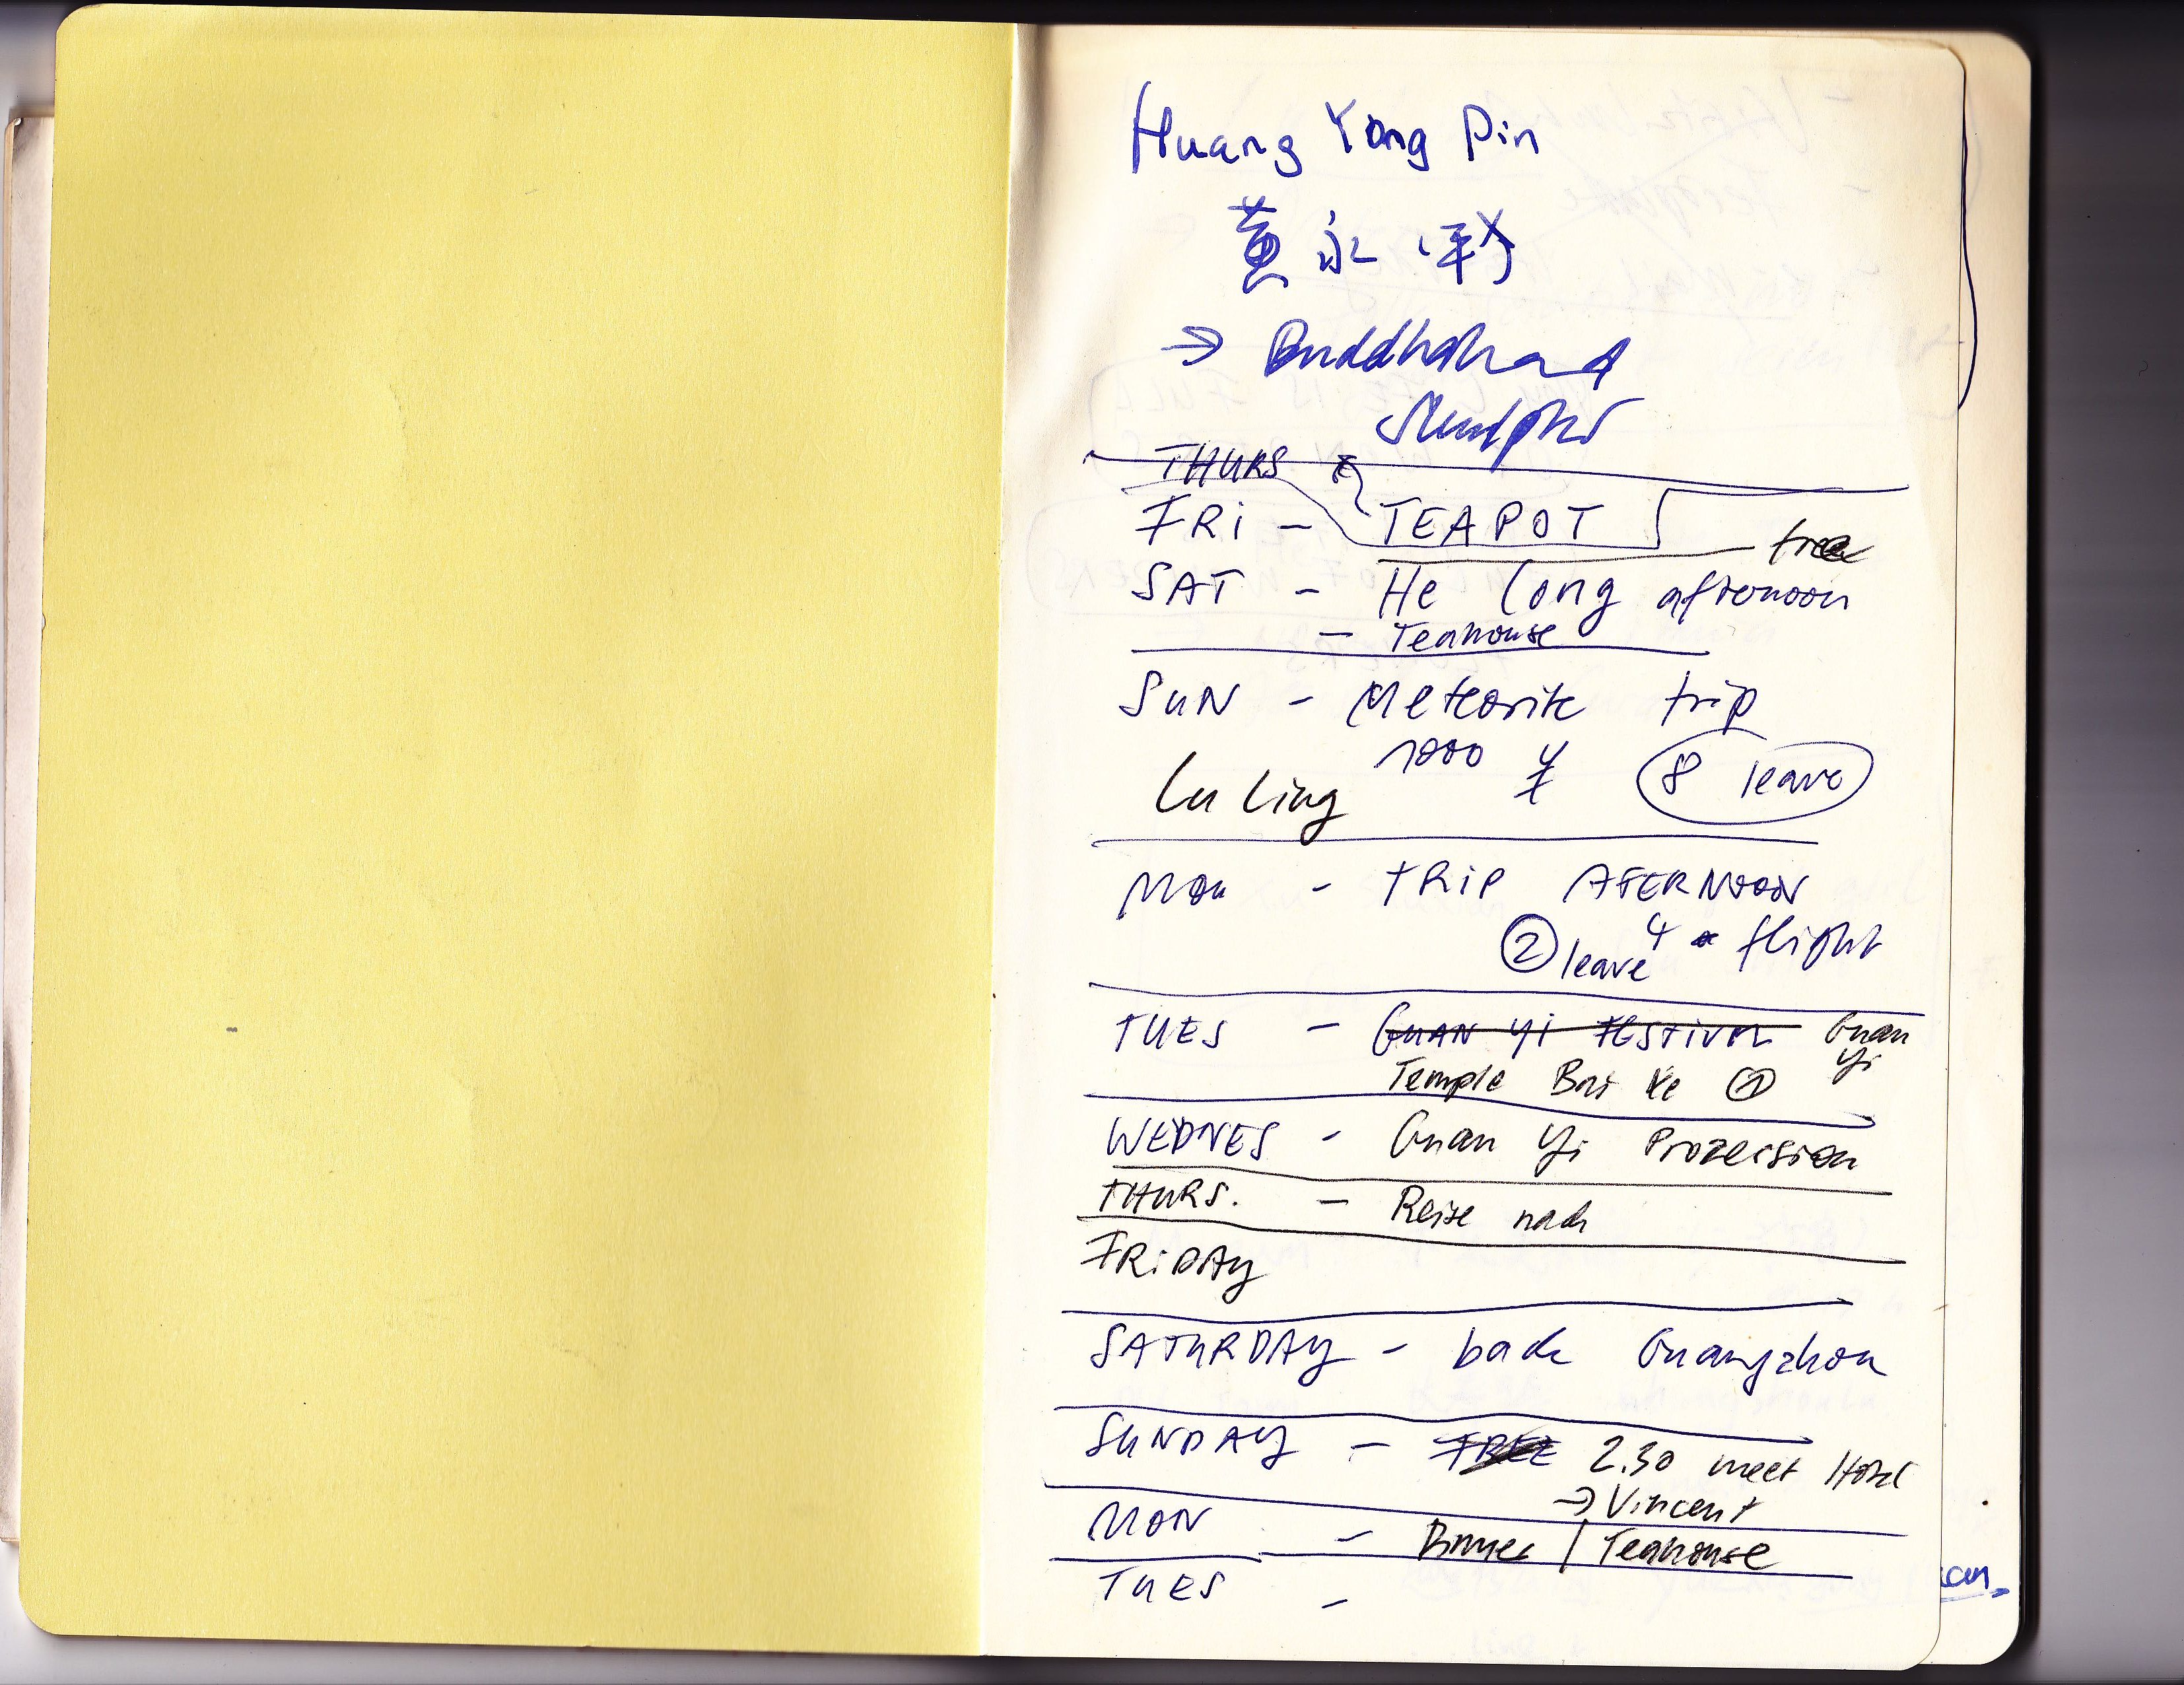 Huang Yong Pin
黄永砯
→ Buddhahand
Skulptur
THURS
FRi - TEAPOT
free
SAT - He Long afternoon
- Teahouse
SUN - Meteorite trip
1000 ¥ 8 leave
Lu Ling
Mon - TRiP AFERNOON
2 leave 4 flight
TUES - GUAN Yi FESTiVAL Guan
Yi
Temple Bai Ke 1
WEDNES - Guan Yi Prozession
THURS. - Reise nach
FRiDAY
SATURDAY - back Guangzhou
SUNDAY - FREE 2.30 meet Hotel
→ Vincent
MON - | Teahouse
TUES -
can.